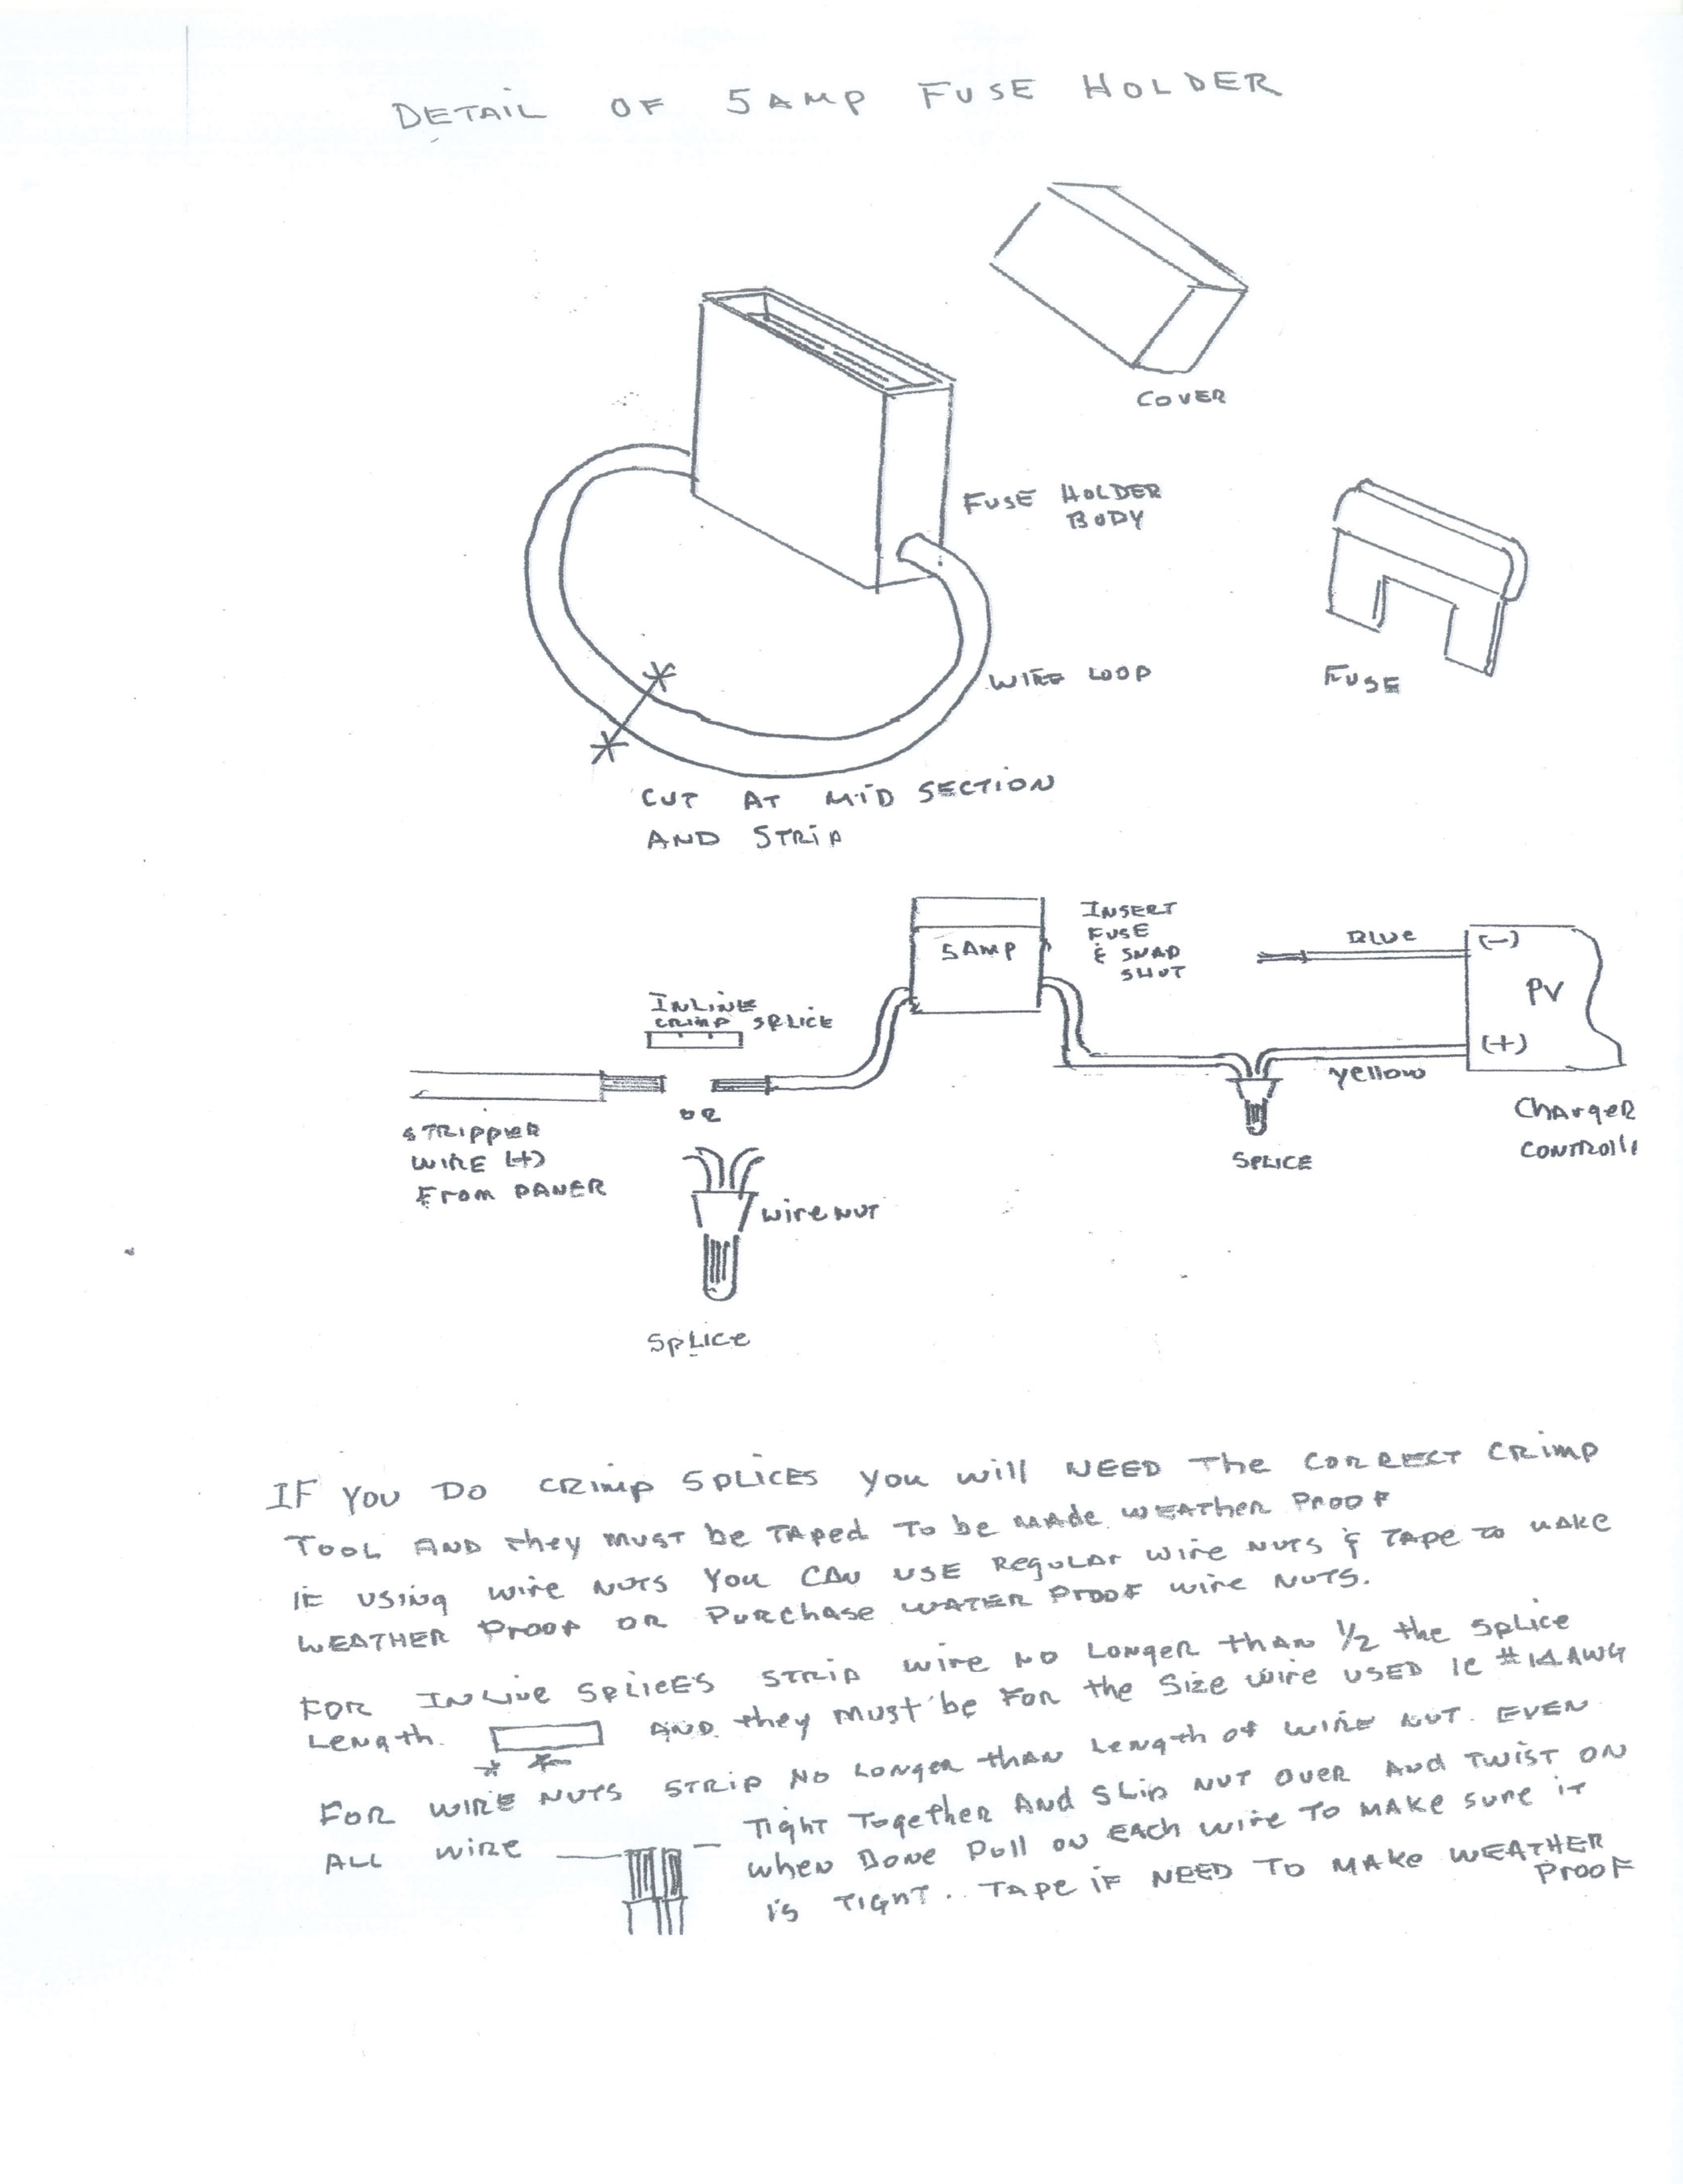 DETAIL OF 5 AMP FUSE HOLDER
COVER
FUSE HOLDER
BODY
FUSE
WIRE LOOP
CUT AT MID SECTION
AND STRIP
INSERT
FUSE
& SNAP
SHUT
5 AMP
BLUE
(-)
PV
(+)
yellow
INLINE
CRIMP SPLICE
OR
STRIPPER
WIRE (+)
From PANER
wire NUT
SPLICE
SPLICE
CHARGER
CONTROLL
IF YOU DO CRIMP SPLICES YOU will NEED The CORRECT CRIMP
TOOL AND they MUST be TAPED TO be MADE WEATHER PROOF
IF USING wire NUTS YOU CAN USE REGULAR wire NUTS & TAPE TO MAKE
WEATHER PROOF OR PURCHASE WATER PROOF wire NUTS.
FOR INLINE SPLICES STRIP wire NO LONGER than 1/2 the SPLICE
LENGTH. AND they MUST be FOR the SIZE wire USED IE #14 AWG
FOR WIRE NUTS STRIP NO LONGER than LENGTH of WIRE NUT. EVEN
ALL WIRE — TIGHT TOGETHER AND SLIP NUT OVER AND TWIST ON
WHEN DONE PULL ON EACH wire TO MAKE SURE IT
IS TIGHT.. TAPE IF NEED TO MAKE WEATHER
PROOF